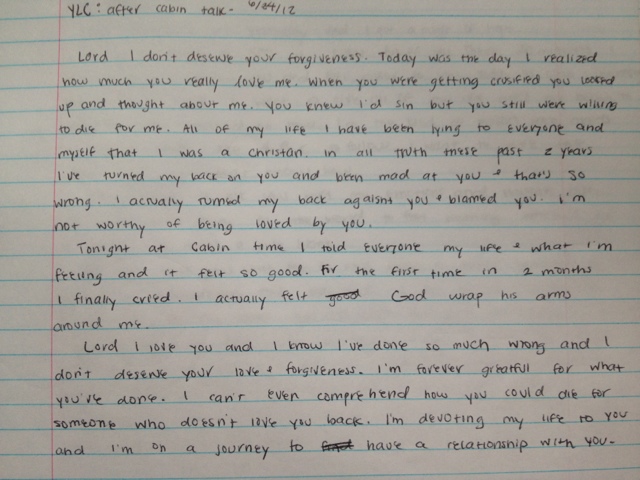 YLC: after cabin talk- 6/24/12
Lord I don't deserve your forgiveness. Today was the day I realized
how much you really love me. When you were getting crusified you looked
up and thought about me. You knew I'd sin but you still were willing
to die for me. All of my life I have been lying to everyone and
myself that I was a christan. In all truth these past 2 years
I've turned my back on you and been mad at you & thats so
wrong. I actually turned my back agaisnt you & blamed you. I'm
not worthy of being loved by you.
Tonight at Cabin time I told everyone my life & what I'm
feeling and it felt so good. For the first time in 2 months
I finally cried. I actually felt good God wrap his arms
around me.
Lord I love you and I know I've done so much wrong and I
don't deserve your love & forgiveness. I'm forever greatful for what
you've done. I can't even comprehend how you could die for
someone who doesn't love you back. I'm devoting my life to you
and I'm on a journey to have a relationship with you-